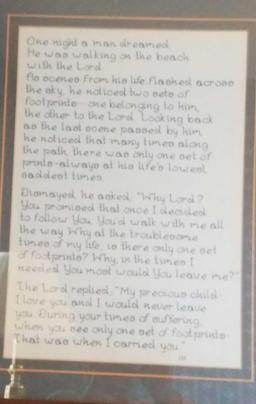 One night a man dreamed
He was walking on the beach
with the Lord.
As scenes from his life flashed across
the sky, he noticed two sets of
footprints-- one belonging to him,
the other to the Lord. Looking back
as the last scene passed by him,
he noticed that many times along
the path, there was only one set of
prints-always at his life's lowest,
saddest times.
Dismayed, he asked, "Why Lord?
You promised that once I decided
to follow You, You'd walk with me all
the way. Why at the troublesome
times of my life, is there only one set
of footprints? Why, in the times I
needed You most would You leave me?"
The Lord replied, "My precious child-
I love you and I would never leave
you. During your times of suffering,
when you see only one set of footprints-
That was when I carried you."